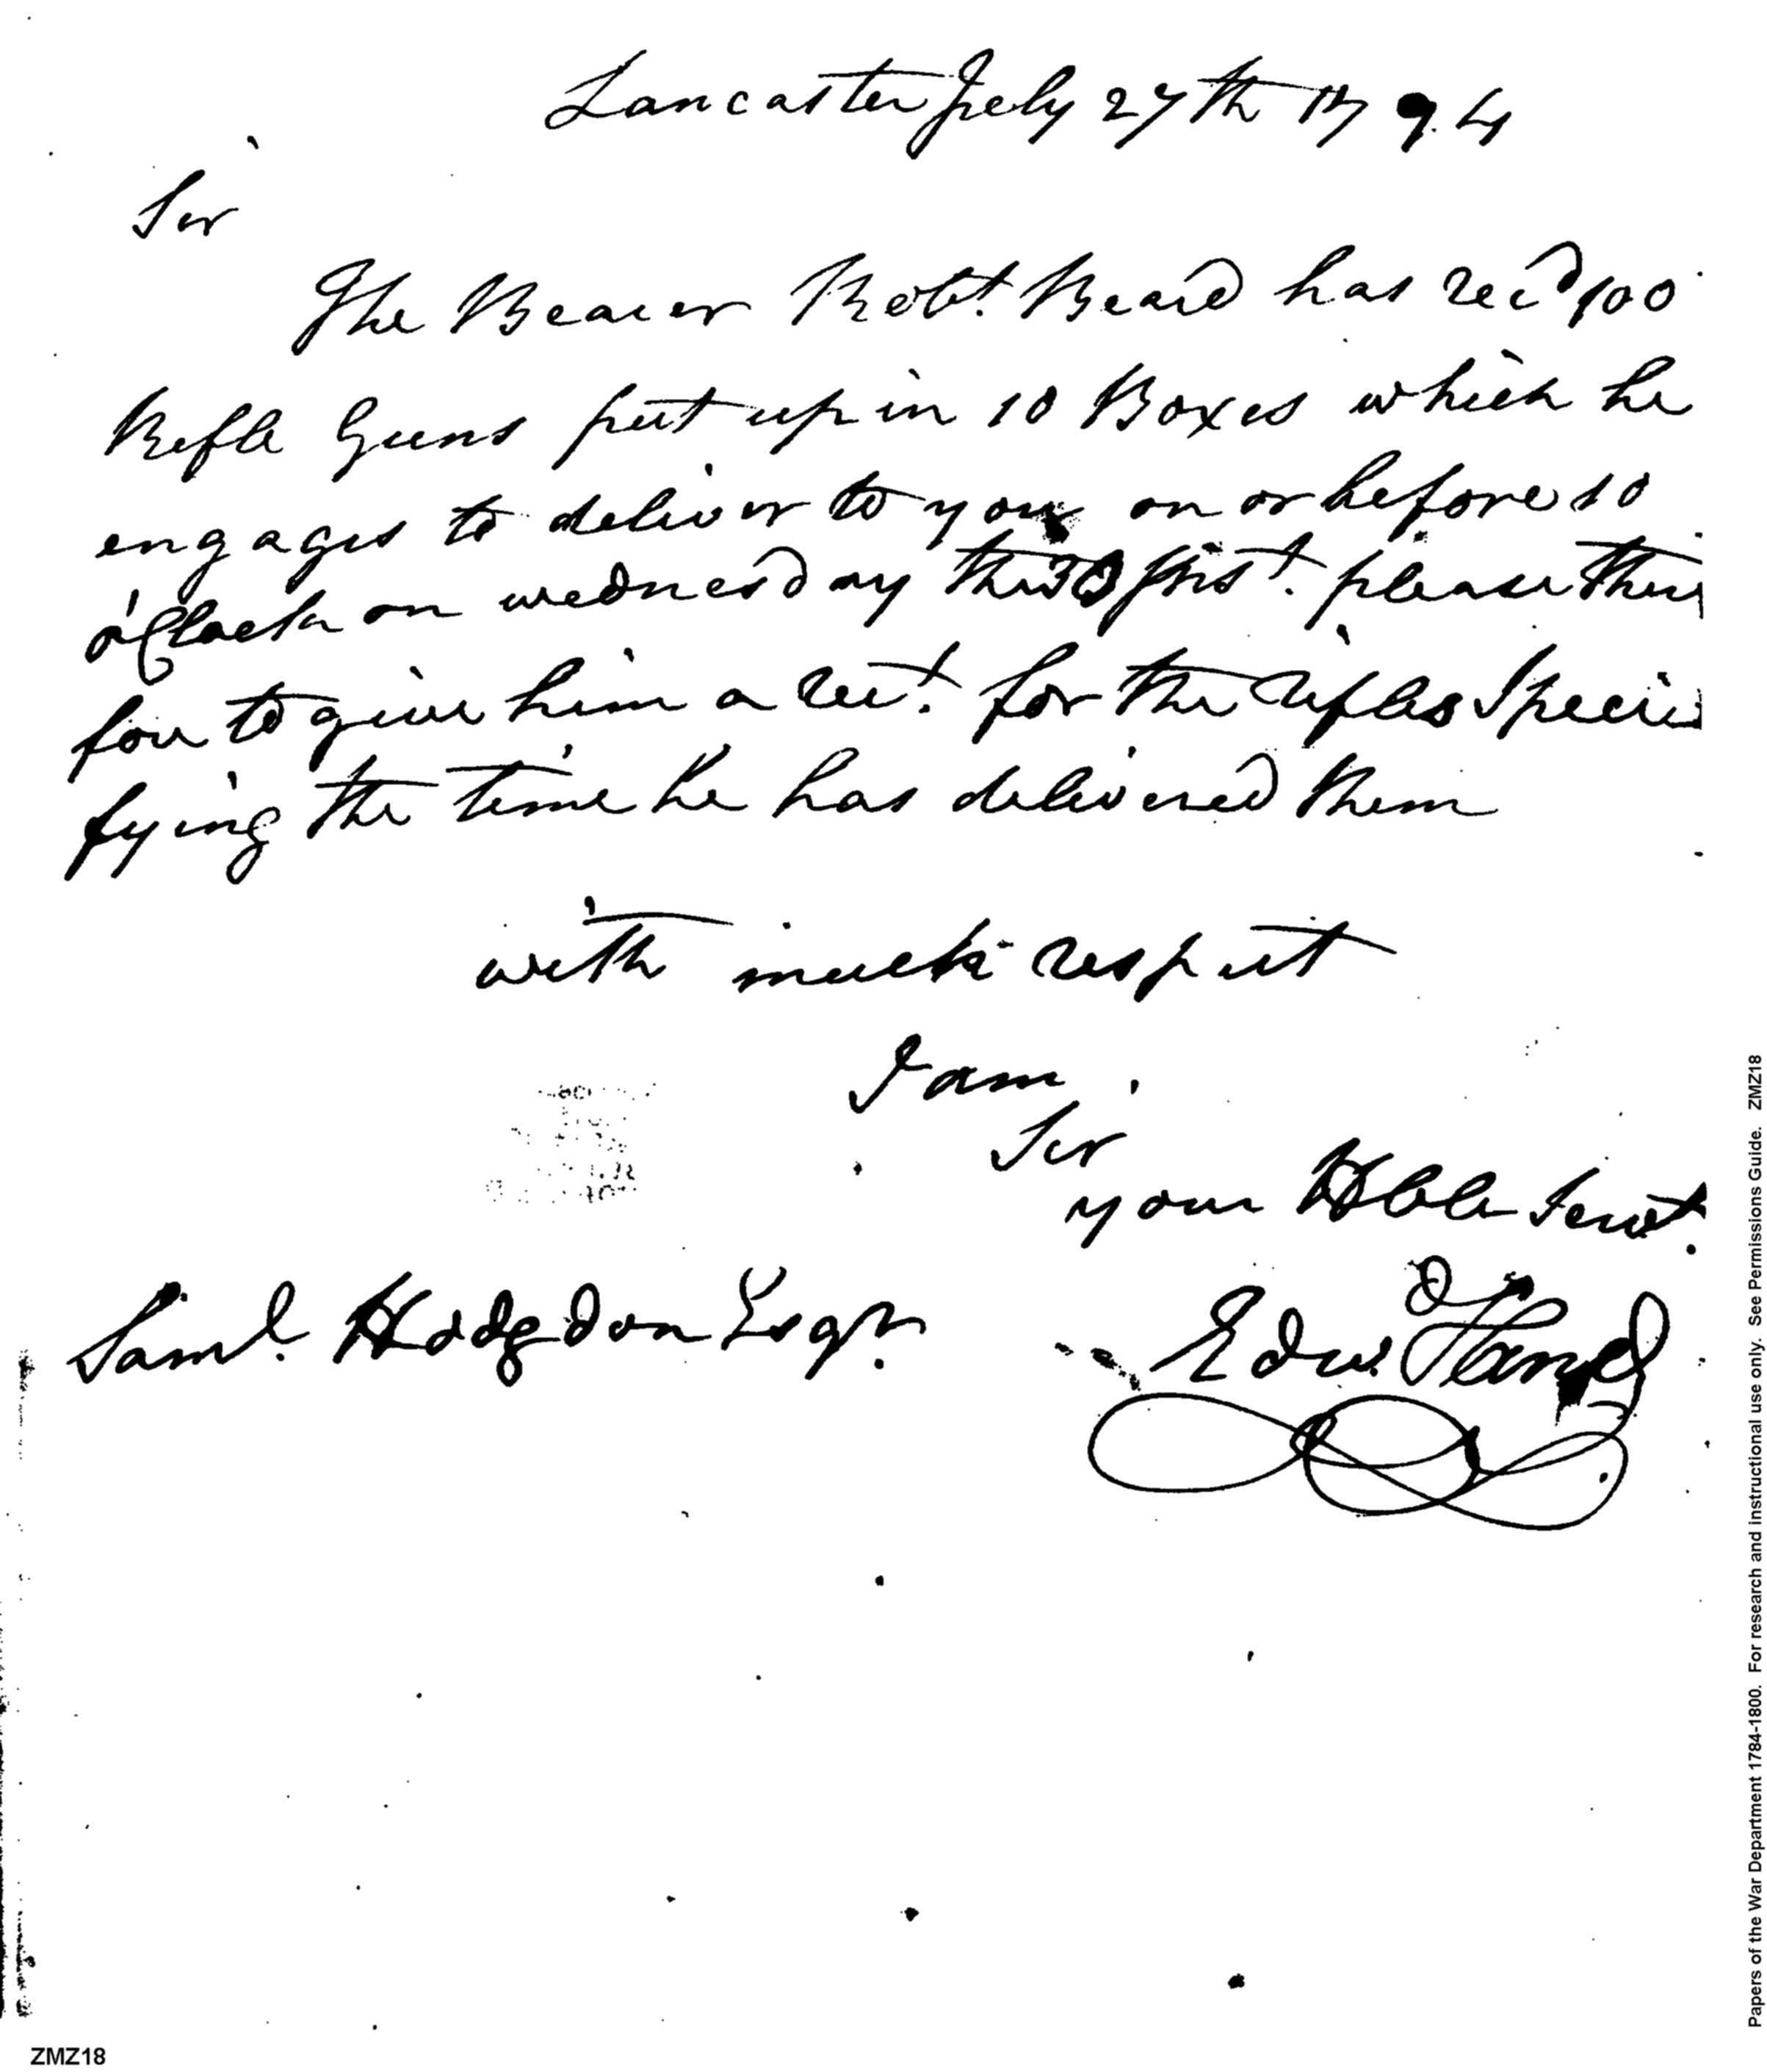 Lancaster July 27th 1794
Sir
The Bearer Robt. Beard has recd 100
Rifle Guns put up in 10 Boxes which he
engages to deliver to you on or before 10
o'Clock on wednesday the 30 Inst. please there
fore to give him a rect. for the rifles Speci
fying the time he has delivered them
with much respect
I am
Sir
your Hble Servt.
Saml. Hodgdon Esqr.
Edwd. Hand
Papers of the War Department 1784-1800. For research and instructional use only. See Permissions Guide. ZMZ18
ZMZ18